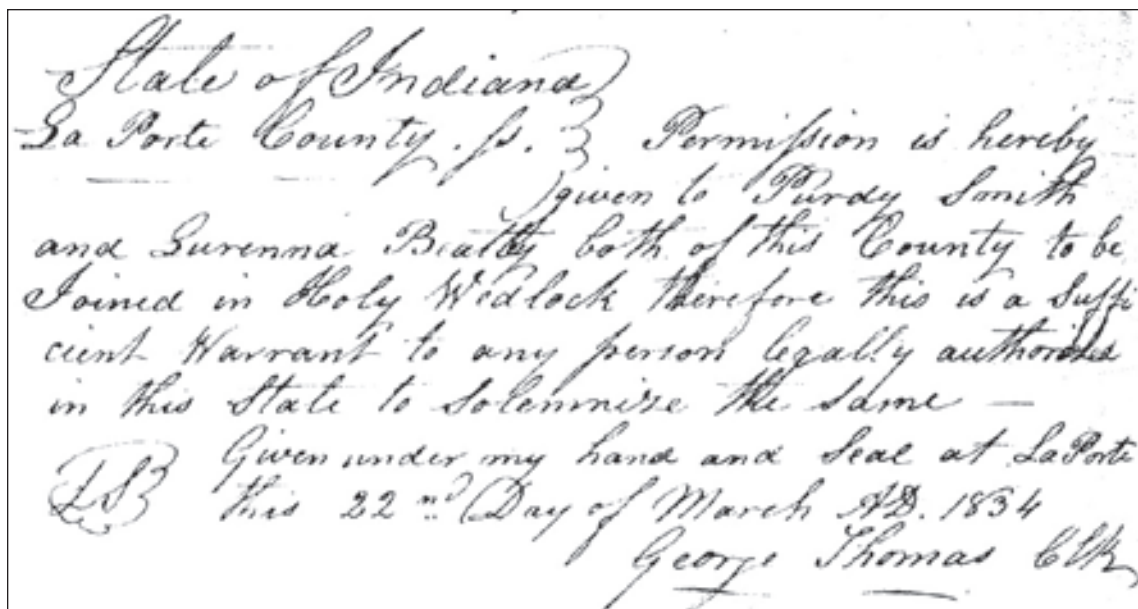 State of Indiana
La Porte County. ss. } Permission is hereby
given to Purdy Smith
and Surenna Beatty both of this County to be
Joined in Holy Wedlock therefore this is a Suffi
cient Warrant to any person legally authorized
in this State to Solemnize the Same —
Given under my hand and Seal at LaPorte
LS this 22nd Day of March AD. 1834
George Thomas Clk